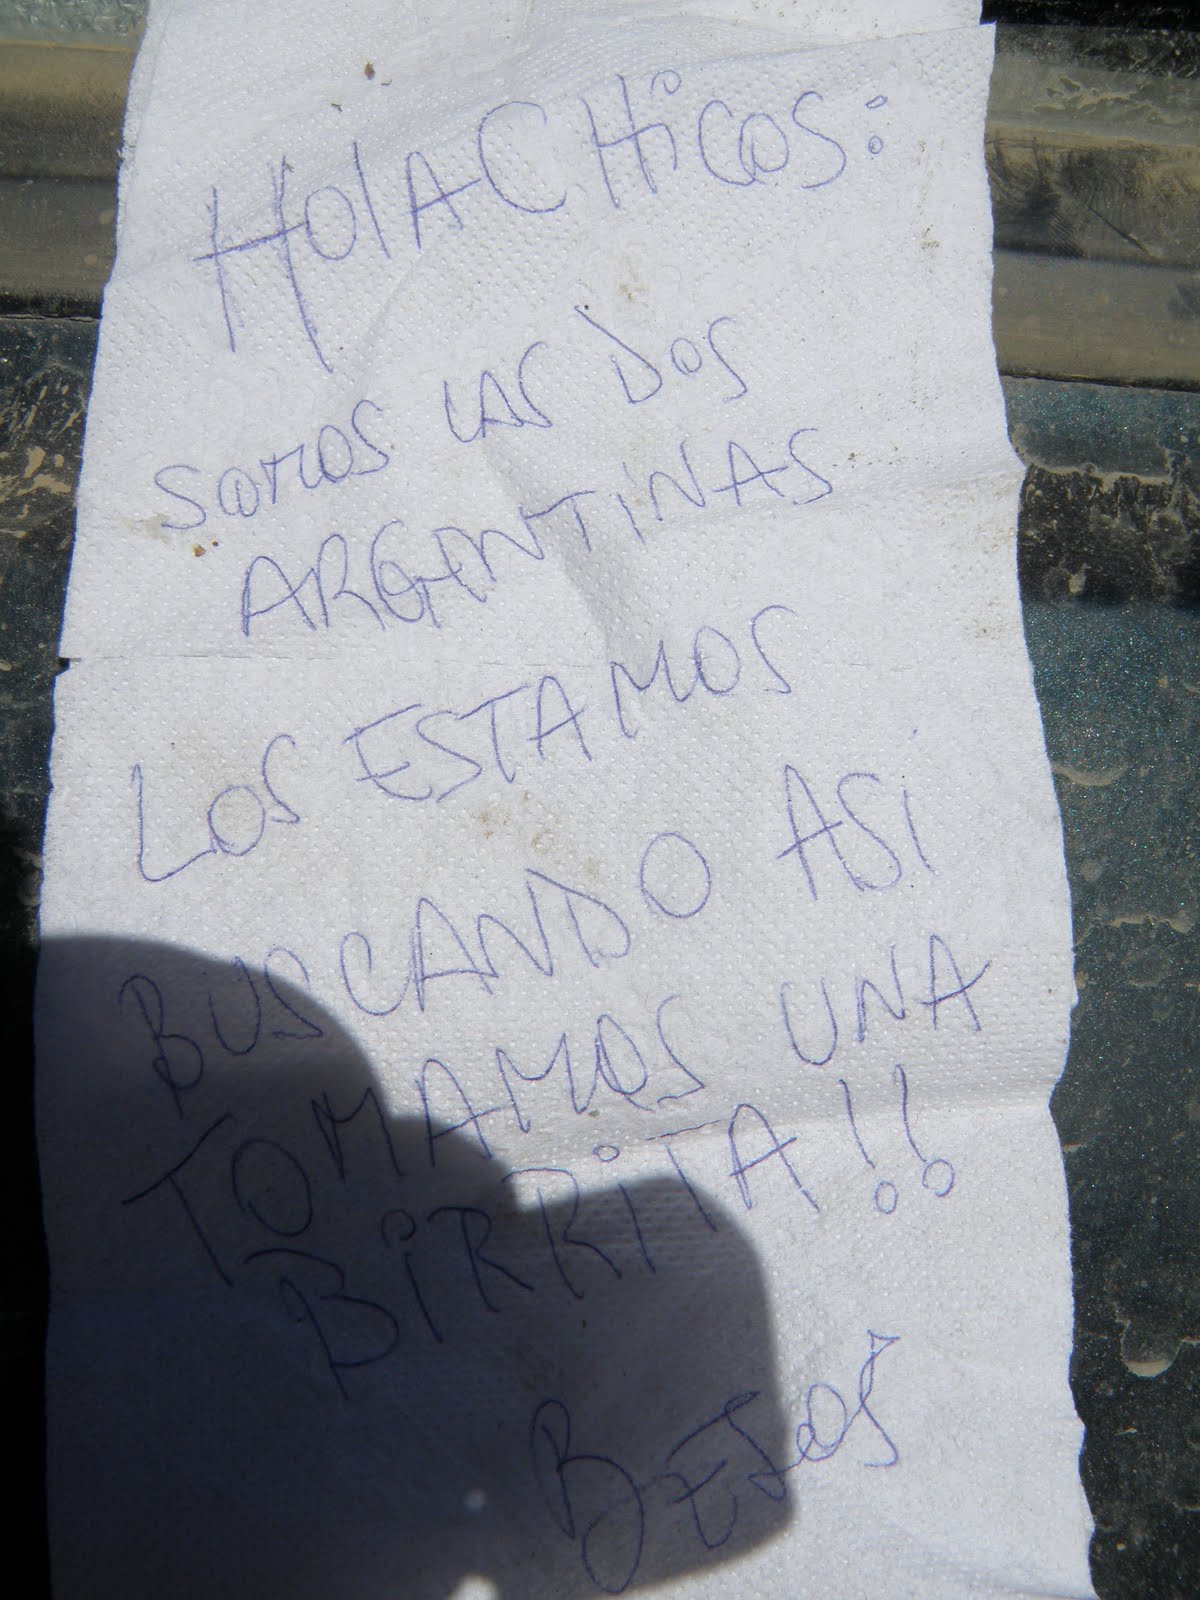 HolA CHicos:
somos LAS Dos
ARGENTiNAS
Los ESTAMOS
BUSCANDO ASi
TOMAMOS UNA
BiRRiTA!!
BESOS